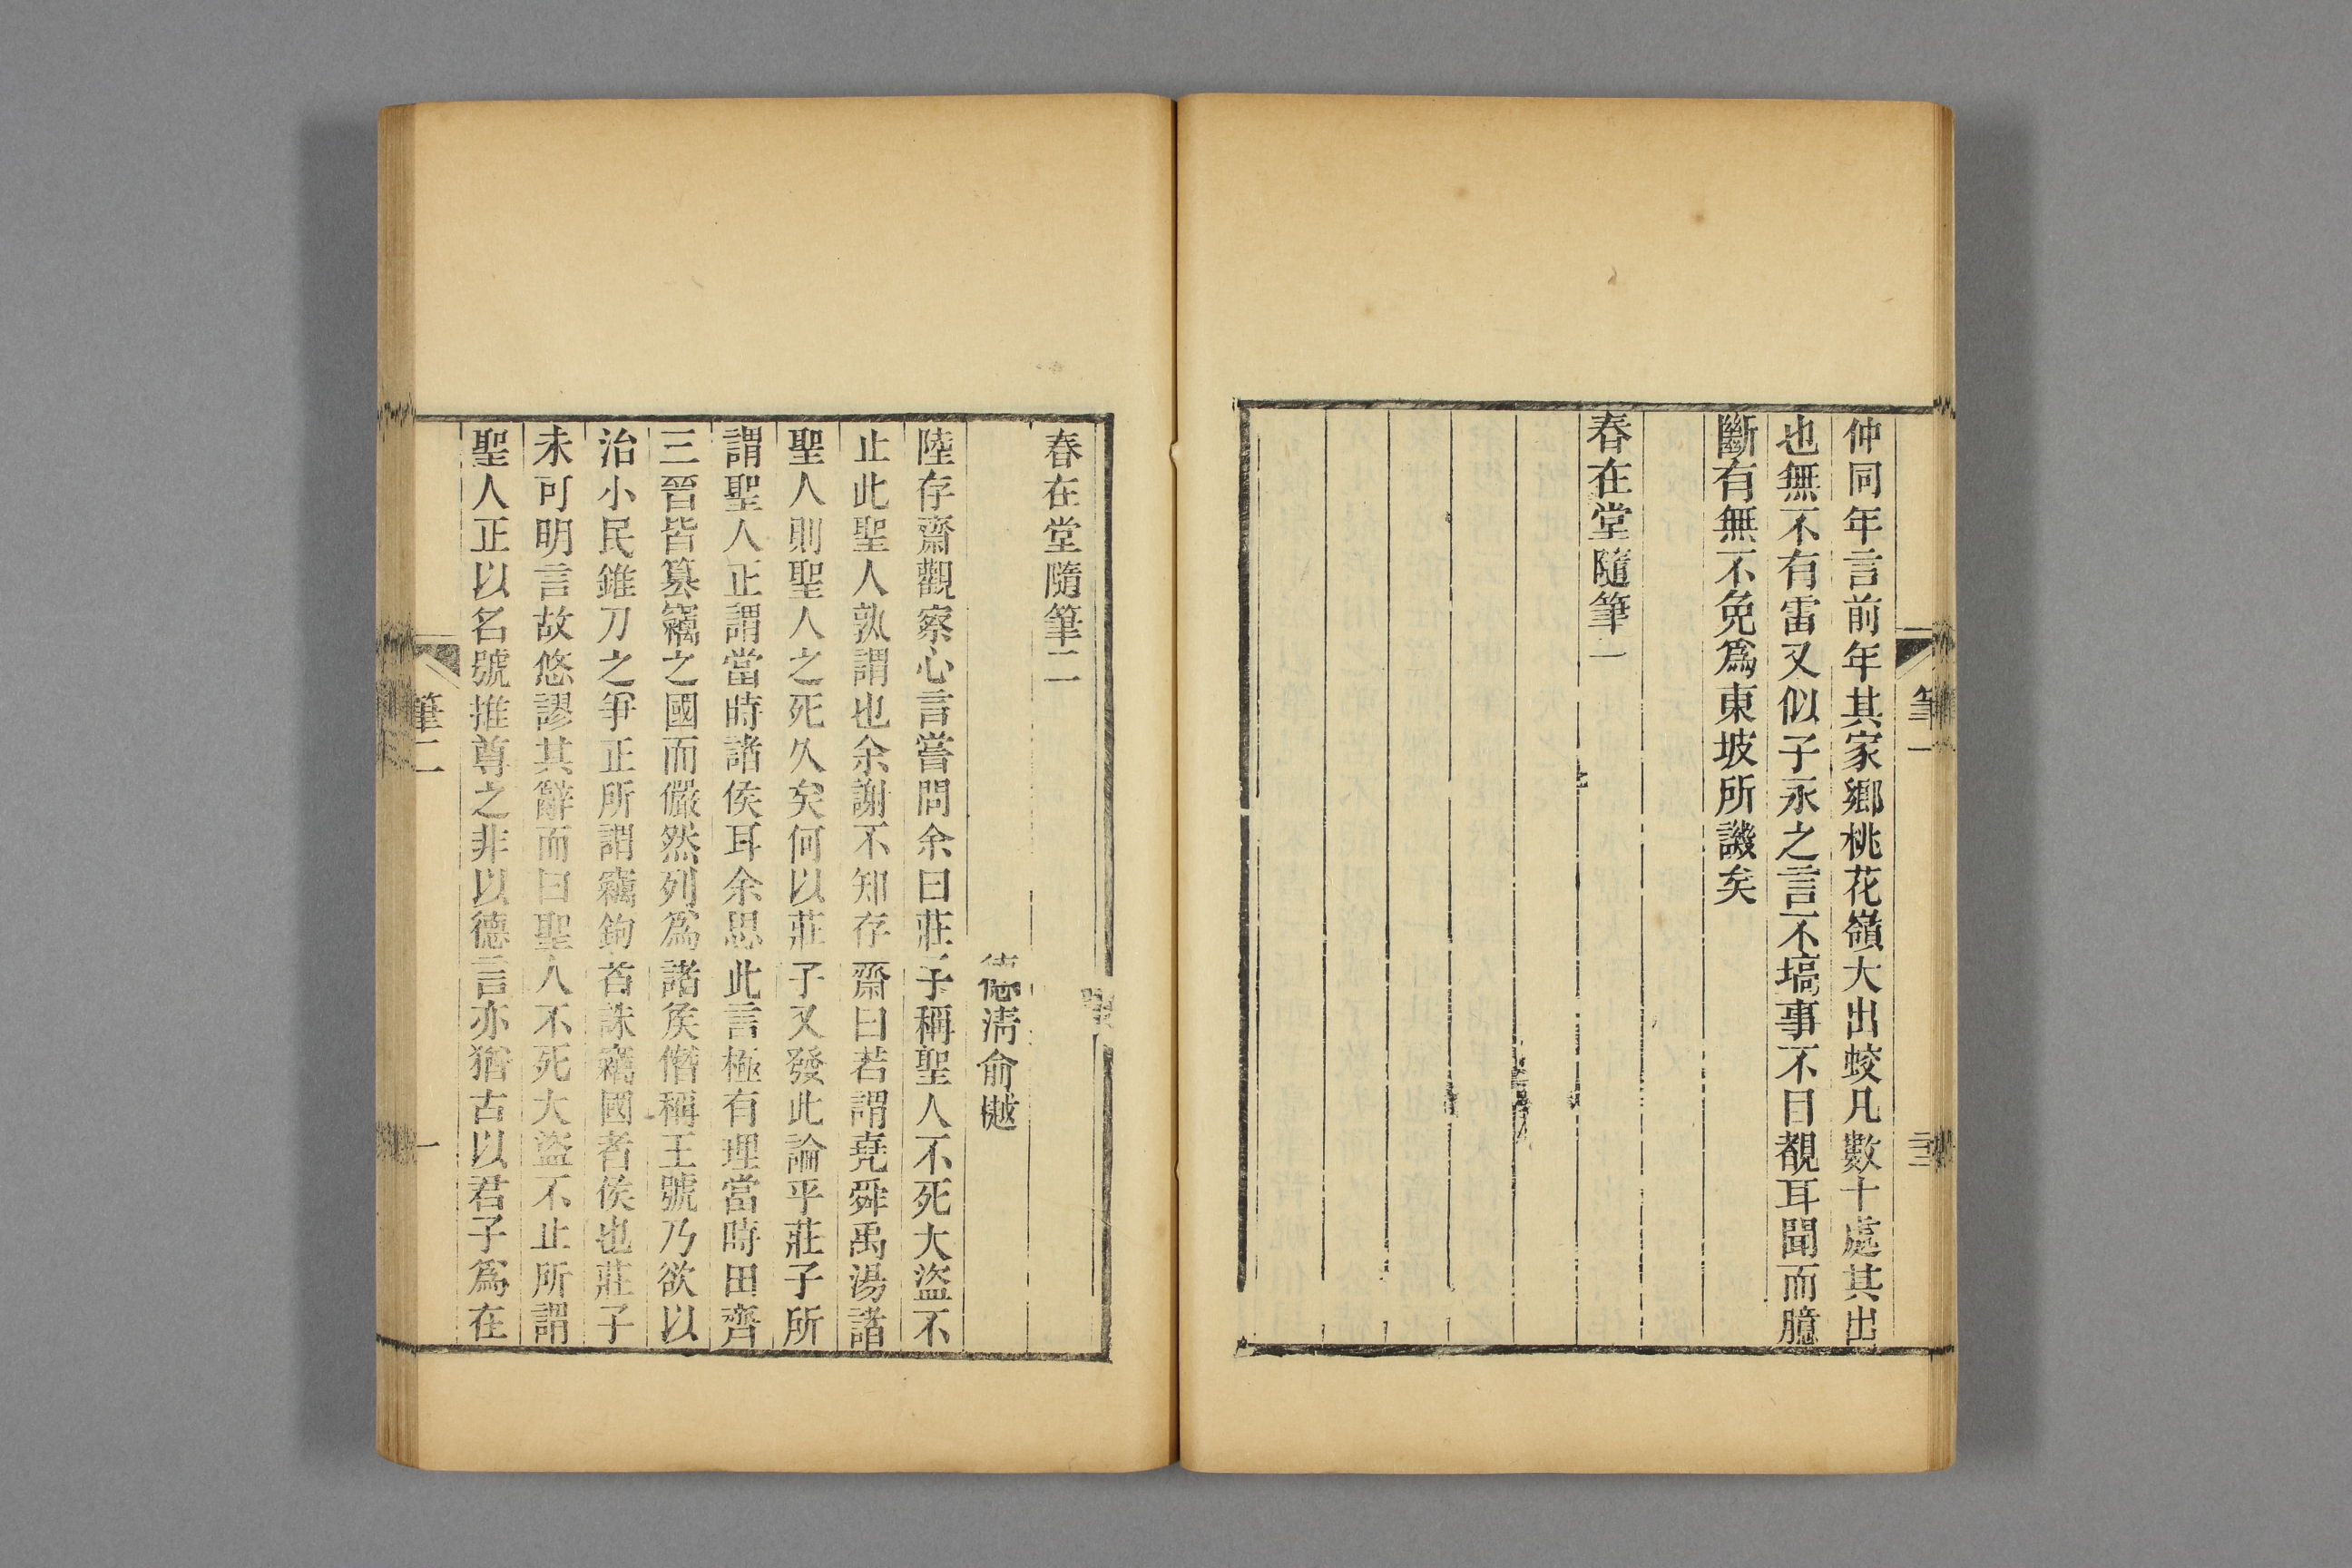 仲同年言前年其家鄉桃花嶺大出蛟凡數十處其出
也無不有雷又似子永之言不塙事不目覩耳聞而臆
斷有無不免爲東坡所譏矣
春在堂隨筆一
筆一
春在堂隨筆二
德淸俞樾
陸存齋觀察心言嘗問余曰莊子稱聖人不死大盜不
止此聖人孰謂也余謝不知存齋曰若謂堯舜禹湯諸
聖人則聖人之死久矣何以莊子又發此論乎莊子所
謂聖人正謂當時諸侯耳余思此言極有理當時田齊
三晉皆篡竊之國而儼然列爲諸矦僭稱王號乃欲以
治小民錐刀之爭正所謂竊鉤者誅竊國者侯也莊子
未可明言故悠謬其辭而曰聖人不死大盜不止所謂
聖人正以名號推尊之非以德言亦猶古以君子爲在
筆二
一